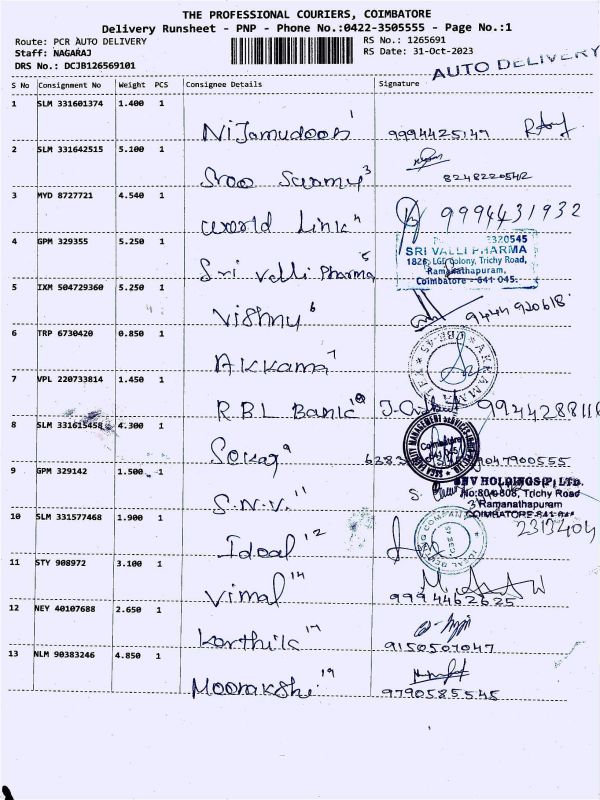 THE PROFESSIONAL COURIERS, COIMBATORE
Delivery Runsheet - PNP - Phone No.:0422-3505555 - Page No.:1
Route: PCR AUTO DELIVERY
RS No.: 1265691
Staff: NAGARAJ
RS Date: 31-Oct-2023
DRS No.: DCJB126569101
AUTO DELIVERY
S No Consignment No Weight PCS Consignee Details Signature
1 SLM 331601374 1.400 1
1
9994425147
2 SLM 331642515 5.100 1
Sroo Swamy 3
8248220542
3 MYD 8727721 4.540 1
World Link 4 9994431932
4 GPM 329355 5.250 1
2320545
SRI VALLI PHARMA
1826, LGE Colony, Trichy Road,
Ramanathapuram,
Coimbatore - 641 045.
Sri Valli Pharma 5
5 IXM 504729360 5.250 1
Vishnu 6 9444 920618
6 TRP 6730420 0.850 1
Akkama 7
7 VPL 220733814 1.450 1
R.B.L Bank 9944288116
8 SLM 331615458 4.300 1
Coimbatore
641 045
9 9047900555
9 GPM 329142 1.500 1
SNV HOLDINGS (P) LTD.
No:804-808, Trichy Road
Ramanathapuram
COIMBATORE-641 045
S.N.V. 11
2313404
10 SLM 331577468 1.900 1
Ideal 12
11 STY 908972 3.100 1
Vimal 14
9994462625
12 NEY 40107688 2.650 1
Karthik 17
9150507047
13 NLM 90383246 4.850 1
Moorakshi 19
9790585545